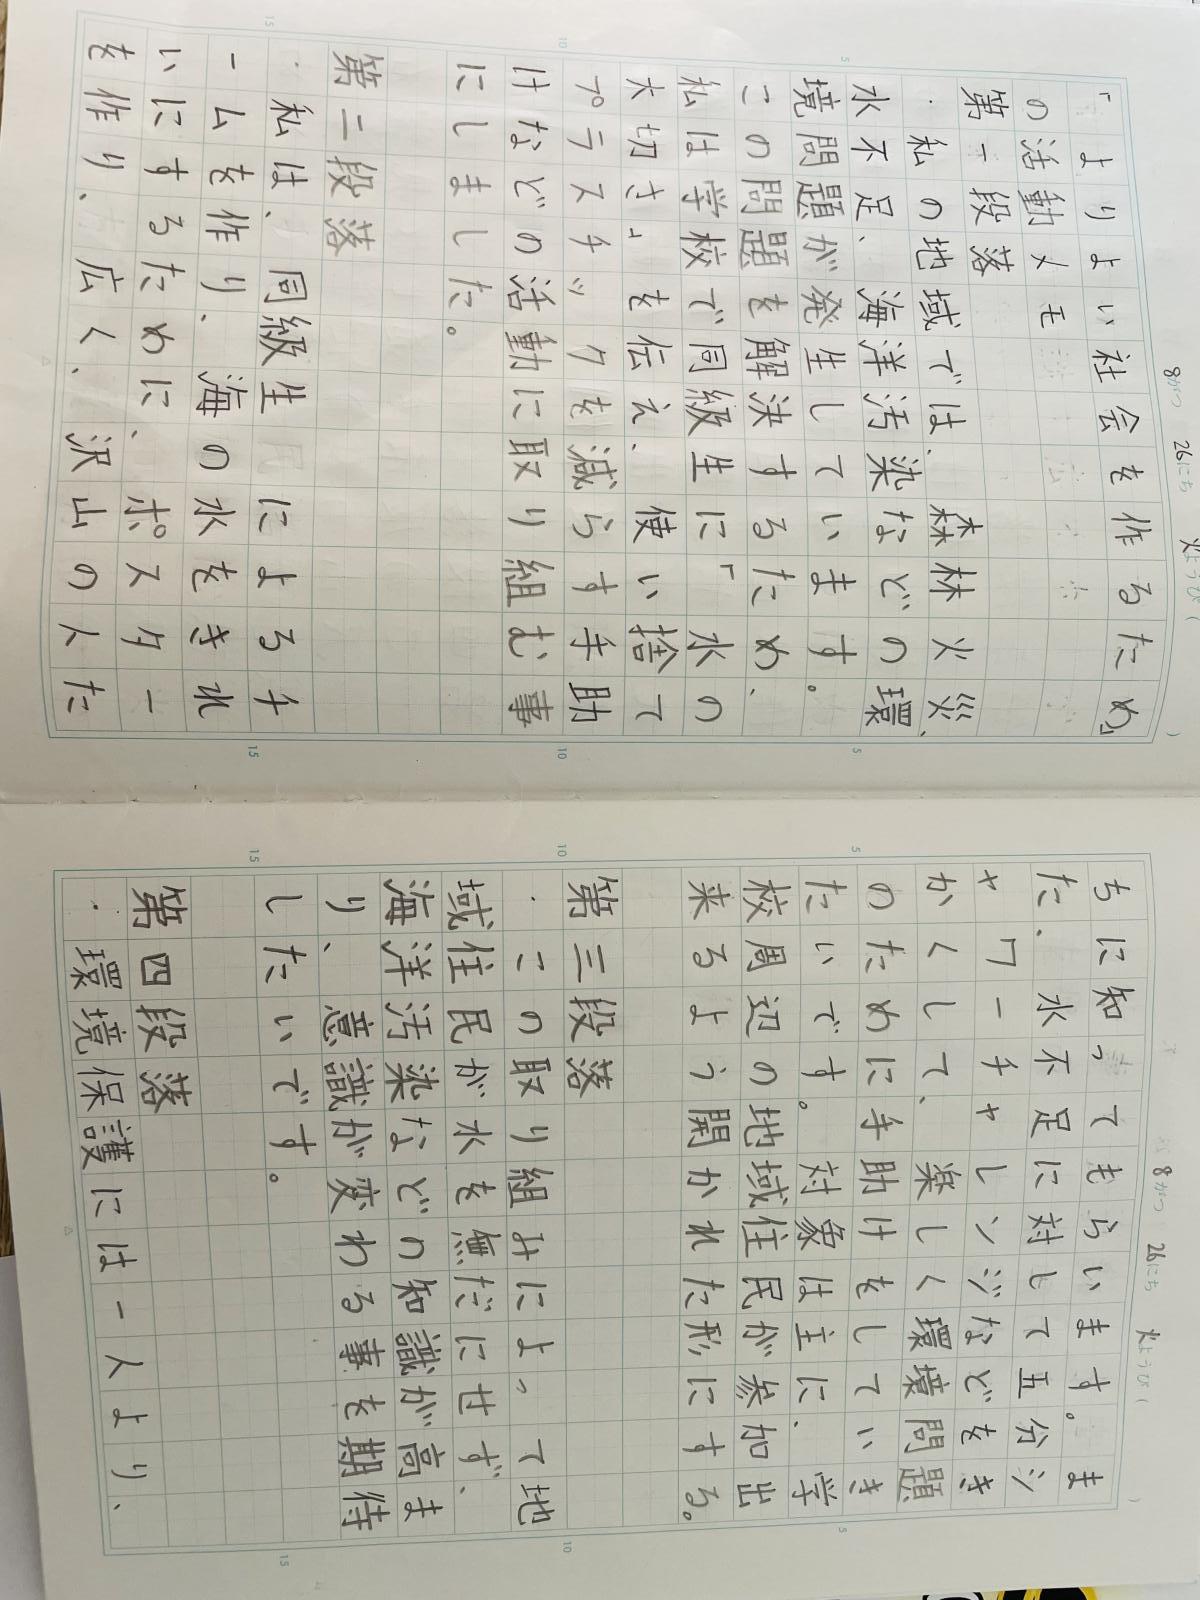 8がつ 26にち 火ようび(
)
「よりよい社会を作るため」
の活動メモ
第一段落
・私の地域では、森林火災、
水不足、海洋汚染などの環
境問題が発生しています。
この問題を解決するため、
私は学校で同級生に「水の
大切さ」を伝え、使い捨て
プラスチックを減らす手助
けなどの活動に取り組む事
にしました。
第二段落
・私は、同級生によるチ
ームを作り、海の水をきれ
いにするために、ポスター
を作り、広く、沢山の人た
5
10
15
8がつ 26にち 火ようび(
)
ちに知ってもらいます。ま
た、水不足に対して五分シ
ャワーチャレンジなどをき
かくして、楽しく環境問題
のために手助けをしていき
たいです。対象は主に、学
校周辺の地域住民が参加出
来るよう開かれた形にする。
第三段落
・この取り組みによって地
域住民が水を無だにせず、
海洋汚染などの知識が高ま
り、意識が変わる事を期待
したいです。
第四段落
・環境保護には一人より、
5
10
15